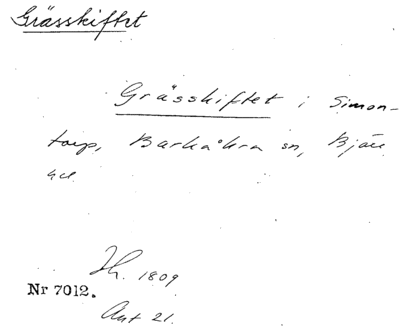 Grässkiftet
Grässkiftet i Simon-
torp, Barkåkra sn, Bjäre
hd.
Jh. 1809
Nr 7012.
Akt 21.